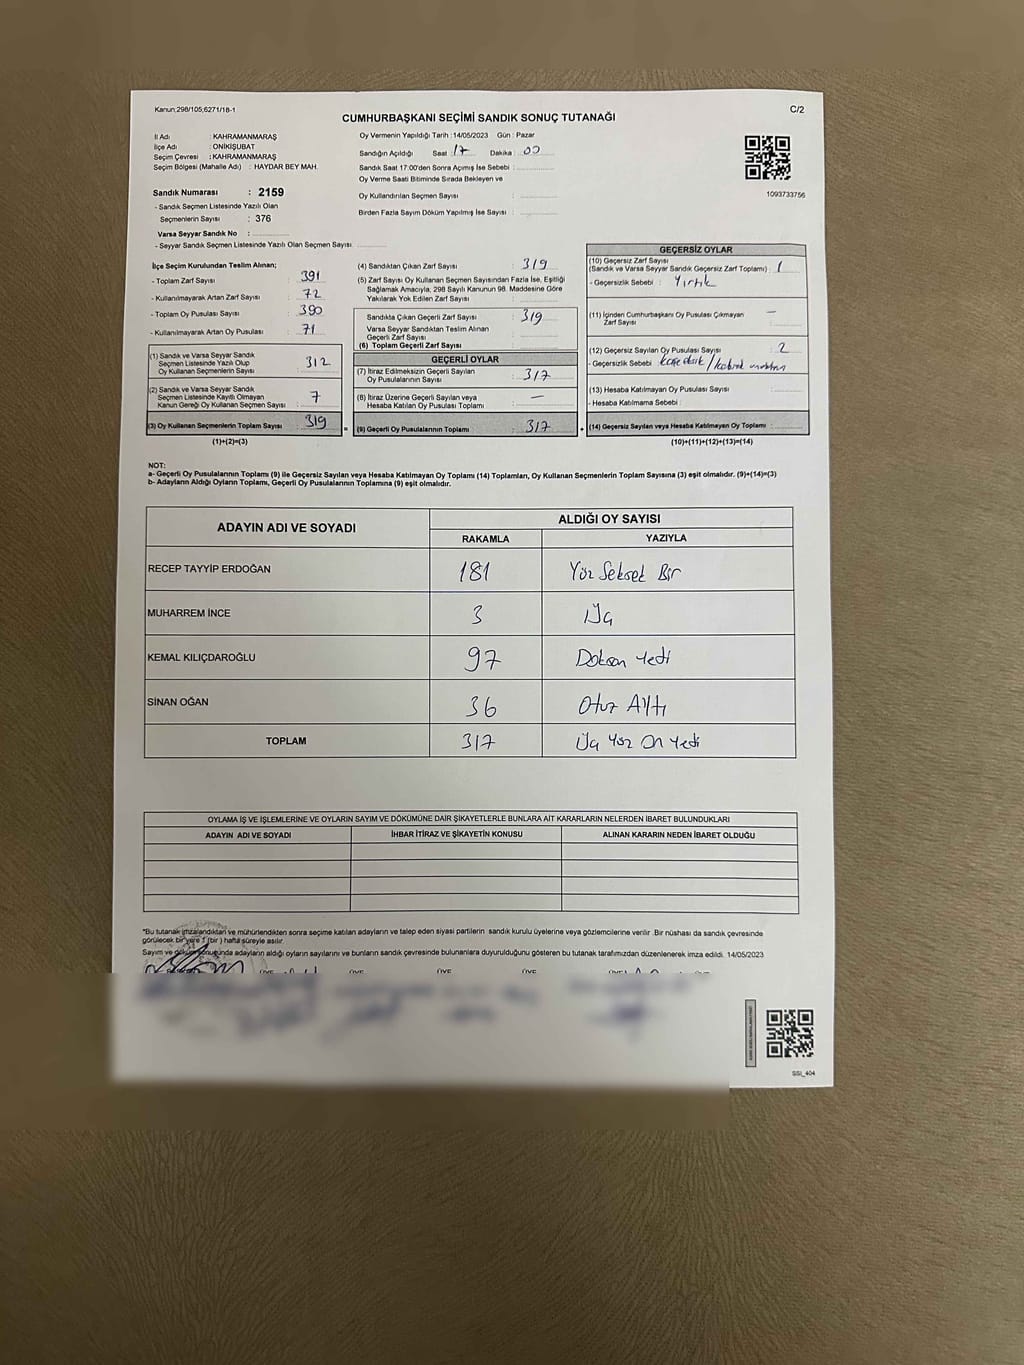 Kanun;298/105;6271/18-1
C/2
CUMHURBAŞKANI SEÇİMİ SANDIK SONUÇ TUTANAĞI
İl Adı : KAHRAMANMARAŞ
İlçe Adı : ONİKİŞUBAT
Seçim Çevresi : KAHRAMANMARAŞ
Seçim Bölgesi (Mahalle Adı) : HAYDAR BEY MAH.
Sandık Numarası : 2159
- Sandık Seçmen Listesinde Yazılı Olan
Seçmenlerin Sayısı : 376
Varsa Seyyar Sandık No :
- Seyyar Sandık Seçmen Listesinde Yazılı Olan Seçmen Sayısı
Oy Vermenin Yapıldığı Tarih : 14/05/2023 Gün : Pazar
Sandığın Açıldığı Saat : 17 Dakika : 00
Sandık Saat 17:00'den Sonra Açımış İse Sebebi :
Oy Verme Saati Bitiminde Sırada Bekleyen ve
Oy Kullandırılan Seçmen Sayısı :
Birden Fazla Sayım Döküm Yapılmış İse Sayısı :
1093733756
İlçe Seçim Kurulundan Teslim Alınan;
- Toplam Zarf Sayısı : 391
- Kullanılmayarak Artan Zarf Sayısı : 72
- Toplam Oy Pusulası Sayısı : 390
- Kullanılmayarak Artan Oy Pusulası : 71
(1) Sandık ve Varsa Seyyar Sandık
Seçmen Listesinde Yazılı Olup
Oy Kullanan Seçmenlerin Sayısı : 312
(2) Sandık ve Varsa Seyyar Sandık
Seçmen Listesinde Kayıtlı Olmayan
Kanun Gereği Oy Kullanan Seçmen Sayısı : 7
(3) Oy Kullanan Seçmenlerin Toplam Sayısı : 319
(1)+(2)=(3)
(4) Sandıktan Çıkan Zarf Sayısı : 319
(5) Zarf Sayısı Oy Kullanan Seçmen Sayısından Fazla İse, Eşitliği
Sağlamak Amacıyla, 298 Sayılı Kanunun 98. Maddesine Göre
Yakılarak Yok Edilen Zarf Sayısı :
Sandıkta Çıkan Geçerli Zarf Sayısı : 319
Varsa Seyyar Sandıktan Teslim Alınan
Geçerli Zarf Sayısı :
(6) Toplam Geçerli Zarf Sayısı :
GEÇERLİ OYLAR
(7) İtiraz Edilmeksizin Geçerli Sayılan
Oy Pusulalarının Sayısı : 317
(8) İtiraz Üzerine Geçerli Sayılan veya
Hesaba Katılan Oy Pusulası Toplamı : —
(9) Geçerli Oy Pusulalarının Toplamı : 317
GEÇERSİZ OYLAR
(10) Geçersiz Zarf Sayısı
(Sandık ve Varsa Seyyar Sandık Geçersiz Zarf Toplamı) : 1
- Geçersizlik Sebebi : Yırtık
(11) İçinden Cumhurbaşkanı Oy Pusulası Çıkmayan
Zarf Sayısı : —
(12) Geçersiz Sayılan Oy Pusulası Sayısı : 2
- Geçersizlik Sebebi :
(13) Hesaba Katılmayan Oy Pusulası Sayısı :
- Hesaba Katılmama Sebebi :
(14) Geçersiz Sayılan veya Hesaba Katılmayan Oy Toplamı :
(10)+(11)+(12)+(13)=(14)
NOT:
a- Geçerli Oy Pusulalarının Toplamı (9) ile Geçersiz Sayılan veya Hesaba Katılmayan Oy Toplamı (14) Toplamları, Oy Kullanan Seçmenlerin Toplam Sayısına (3) eşit olmalıdır. (9)+(14)=(3)
b- Adayların Aldığı Oyların Toplamı, Geçerli Oy Pusulalarının Toplamına (9) eşit olmalıdır.
ADAYIN ADI VE SOYADI
ALDIĞI OY SAYISI
RAKAMLA YAZIYLA
RECEP TAYYİP ERDOĞAN 181 Yüz Seksen Bir
MUHARREM İNCE 3 Üç
KEMAL KILIÇDAROĞLU 97 Doksan Yedi
SİNAN OĞAN 36 Otuz Altı
TOPLAM 317 Üç Yüz On Yedi
OYLAMA İŞ VE İŞLEMLERİNE VE OYLARIN SAYIM VE DÖKÜMÜNE DAİR ŞİKAYETLERLE BUNLARA AİT KARARLARIN NELERDEN İBARET BULUNDUKLARI
ADAYIN ADI VE SOYADI İHBAR İTİRAZ VE ŞİKAYETİN KONUSU ALINAN KARARIN NEDEN İBARET OLDUĞU
*Bu tutanak imzalandıktan ve mühürlendikten sonra seçime katılan adayların ve talep eden siyasi partilerin sandık kurulu üyelerine veya gözlemcilerine verilir .Bir nüshası da sandık çevresinde
görülecek bir yere 1 (bir ) hafta süreyle asılır.
Sayım ve döküm sonucunda adayların aldığı oyların sayılarını ve bunların sandık çevresinde bulunanlara duyurulduğunu gösteren bu tutanak tarafımızdan düzenlenerek imza edildi. 14/05/2023
SSI_404